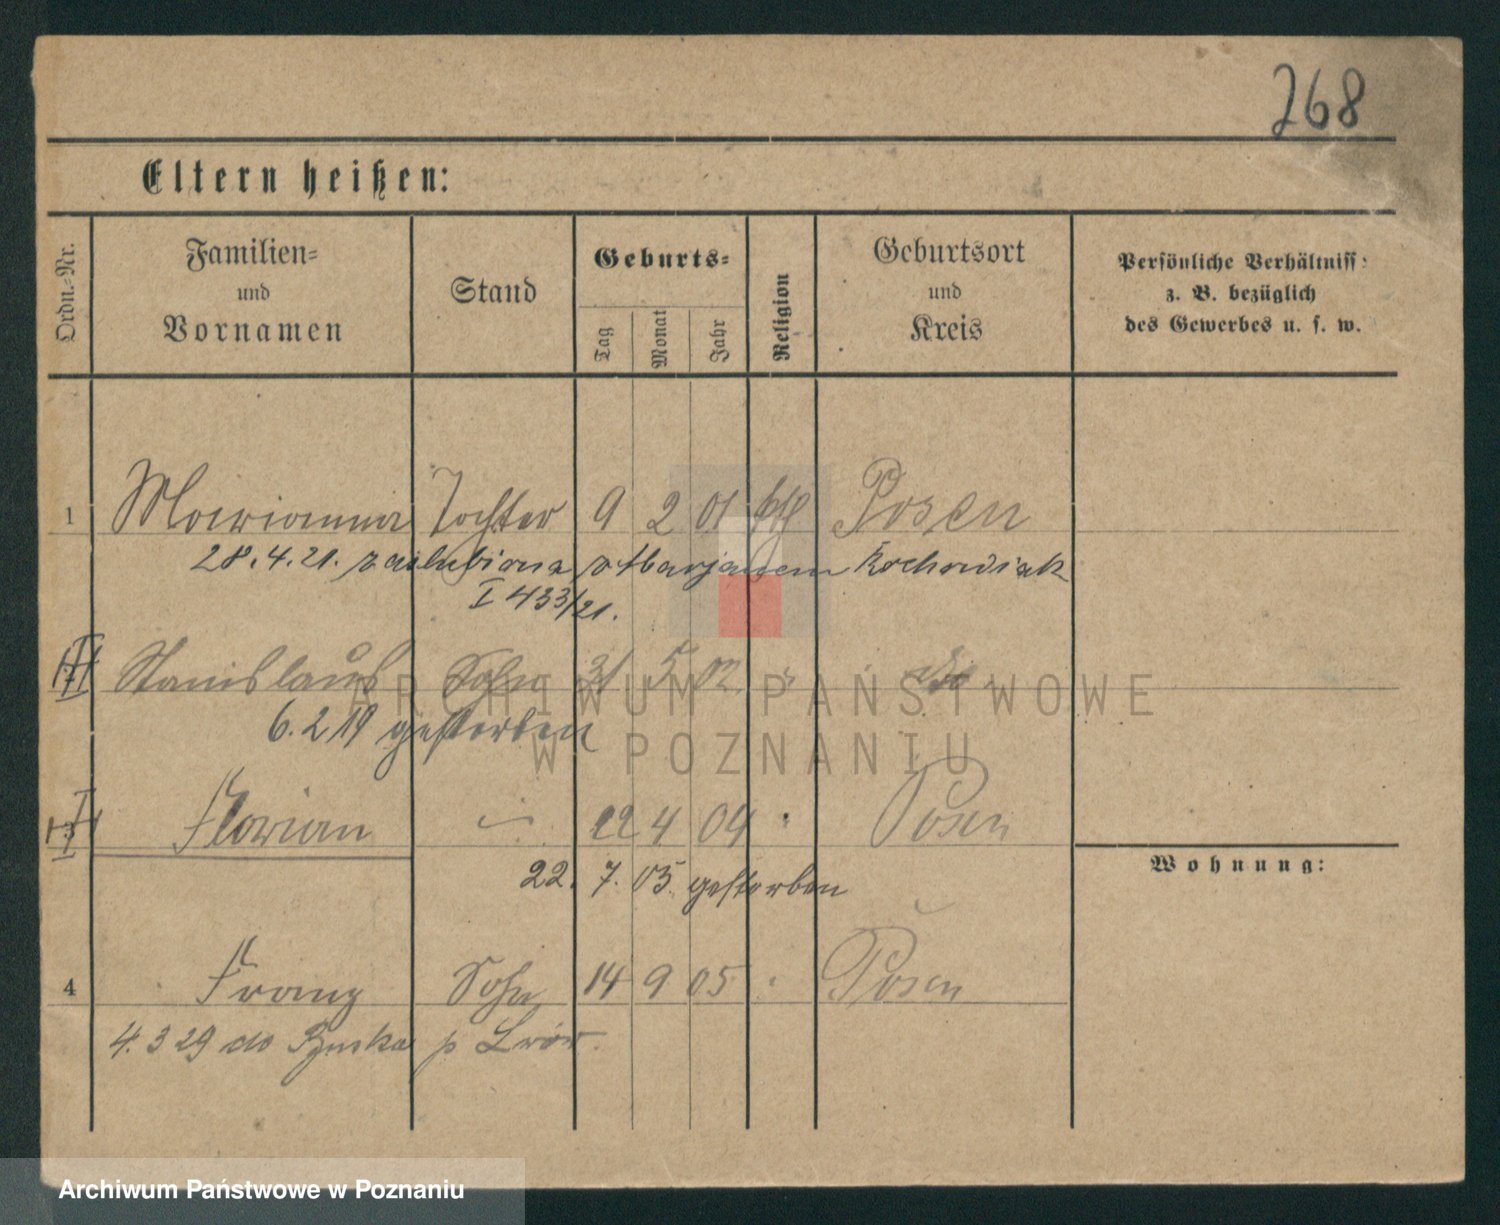 268
Eltern heißen:
Ordn.-Nr.
Familien-
und
Vornamen
Stand
Geburts-
Tag
Monat
Jahr
Religion
Geburtsort
und
Kreis
Persönliche Verhältniss
z. B. bezüglich
des Gewerbes u. s. w.
1 Marianna Tochter 9 2 01 kth Posen
28.4.21. zaślubiona z Marjanem Kochowiak
I 433/21.
Stanislaus Sohn 31 5 02 do.
6.2 19 gestorben
ARCHIWUM PAŃSTWOWE
W POZNANIU
Florian 22 4 04 " Posen
22. 7. 05 gestorben
Wohnung:
4 Franz Sohn 14 9 05 Posen
4. 3 29 do p Lwów.
Archiwum Państwowe w Poznaniu